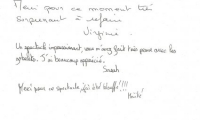 Merci pour ce moment très
surprenant à refaire
Virginie
Un spectacle impressionnant, vous m'avez fait très peur avec les
gobelets. J'ai beaucoup apprécié.
Sarah
Merci pour ce spectacle, j'ai été bluffé!!!
Maïté